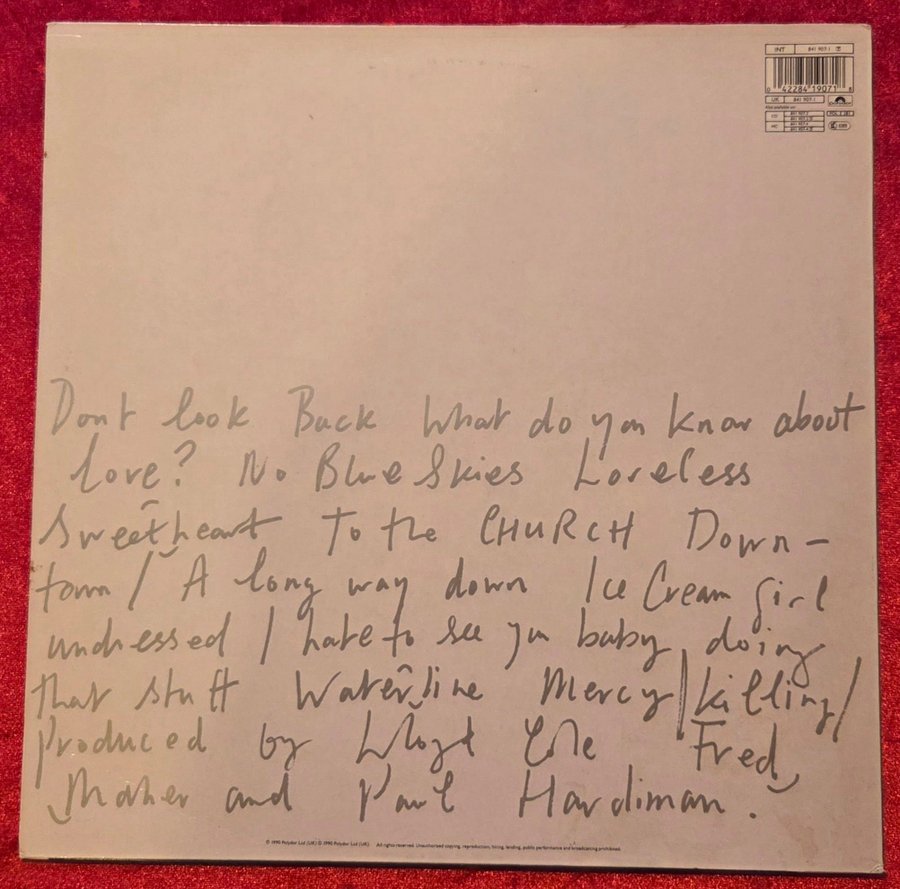 INT 841 907-1
0 42284 19071 8
UK 841 907-1
Dont look Back What do you know about
love? No Blue Skies Loveless
Sweetheart To the CHURCH Down-
town / A long way down Ice Cream girl
undressed I hate to see you baby doing
that stuff Waterline Mercy/killing/
Produced by Lloyd Cole Fred
Maher and Paul Hardiman.
℗ 1990 Polydor Ltd (UK) © 1990 Polydor Ltd (UK) All rights reserved. Unauthorised copying, reproduction, hiring, lending, public performance and broadcasting prohibited.